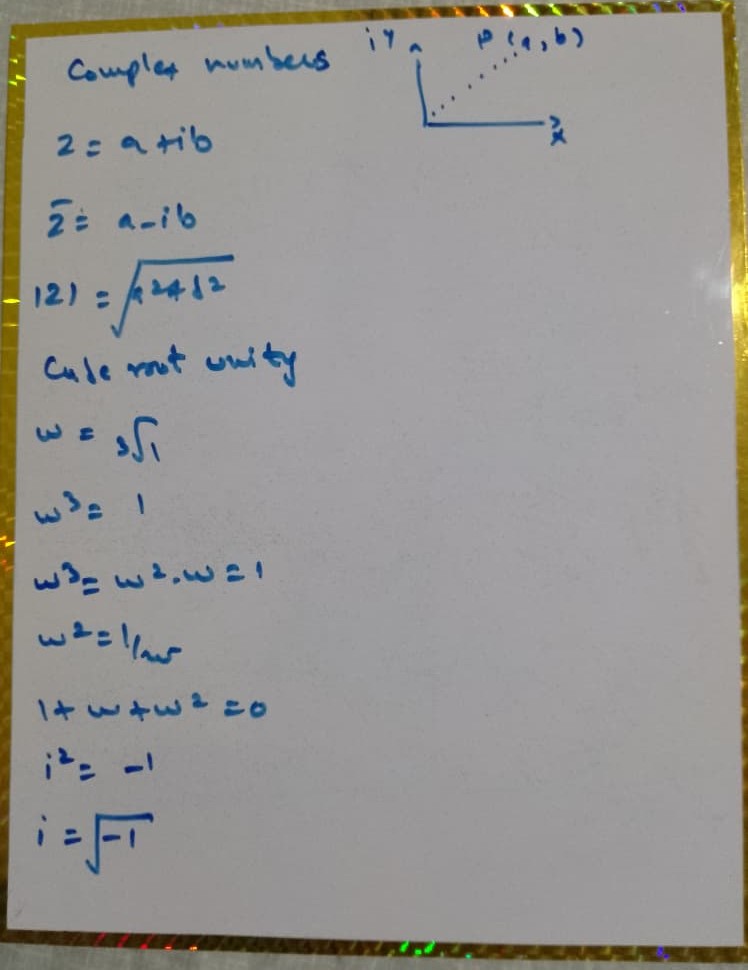 Complex numbers
iy
P(a,b)
x
z = a+ib
z̄ = a-ib
|z| = √a²+b²
Cube root unity
w = ³√1
w³= 1
w³= w².w = 1
w²=1/w
1+ w+w² =0
i²= -1
i =√-1